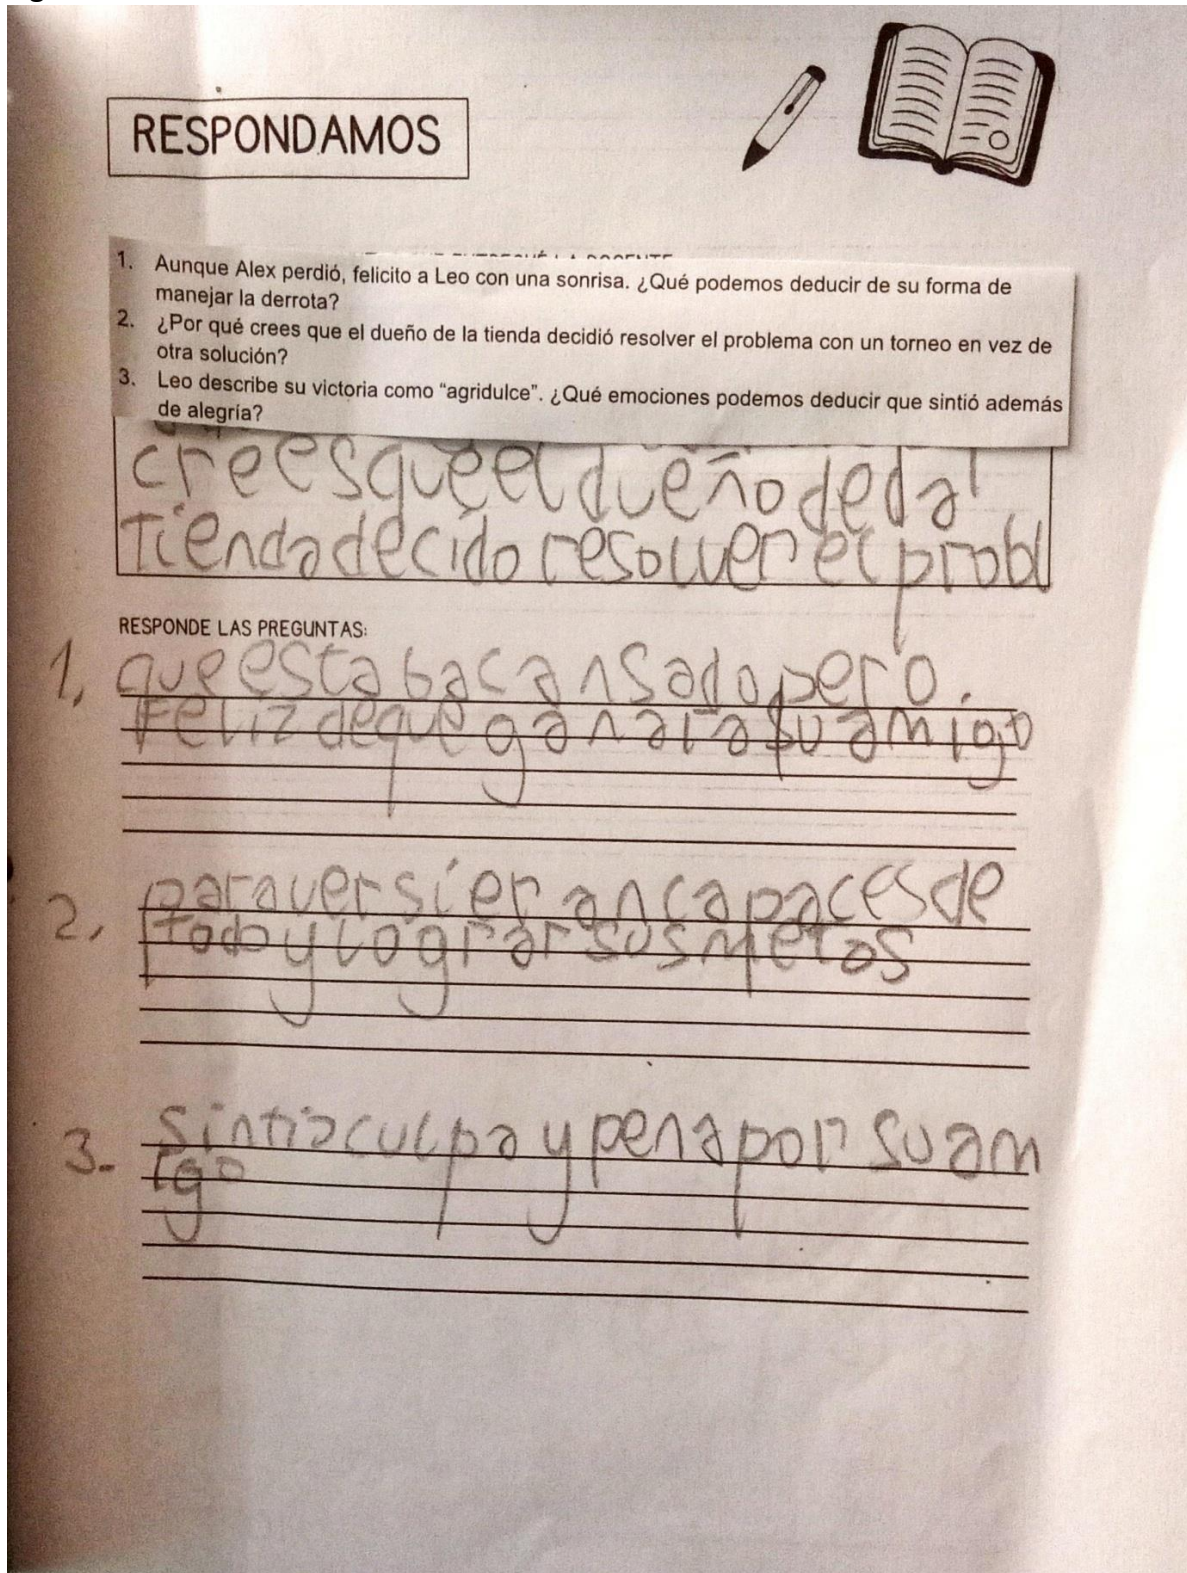 RESPONDAMOS
1. Aunque Alex perdió, felicito a Leo con una sonrisa. ¿Qué podemos deducir de su forma de
manejar la derrota?
2. ¿Por qué crees que el dueño de la tienda decidió resolver el problema con un torneo en vez de
otra solución?
3. Leo describe su victoria como "agridulce". ¿Qué emociones podemos deducir que sintió además
de alegría?
crees que el dueño de dal
Tienda decido resolver el probl
RESPONDE LAS PREGUNTAS:
1, que estaba cansado pero.
Feliz de que ganara su amigo
2, para ver si eran capaces de
todo y lograr sus metos
3- sintia culpa y pena por su am
igo